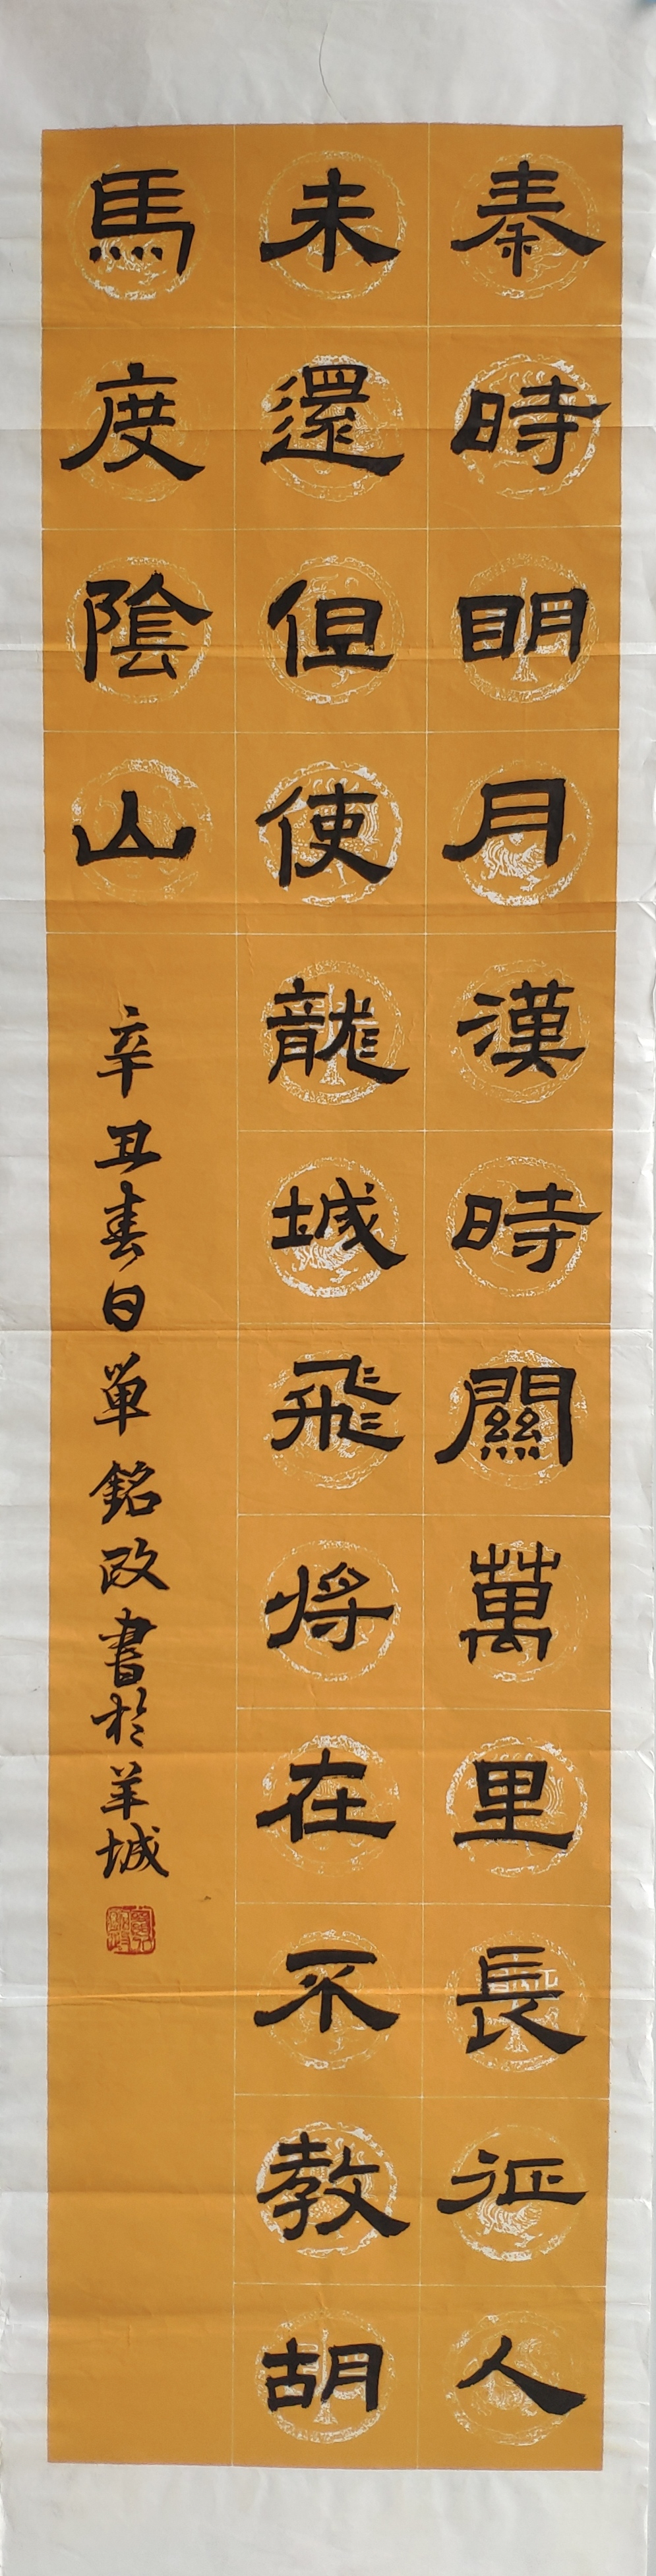 秦時明月漢時關萬里長征人
未還但使龍城飛將在不教胡
馬度陰山
辛丑春日單銘政書於羊城